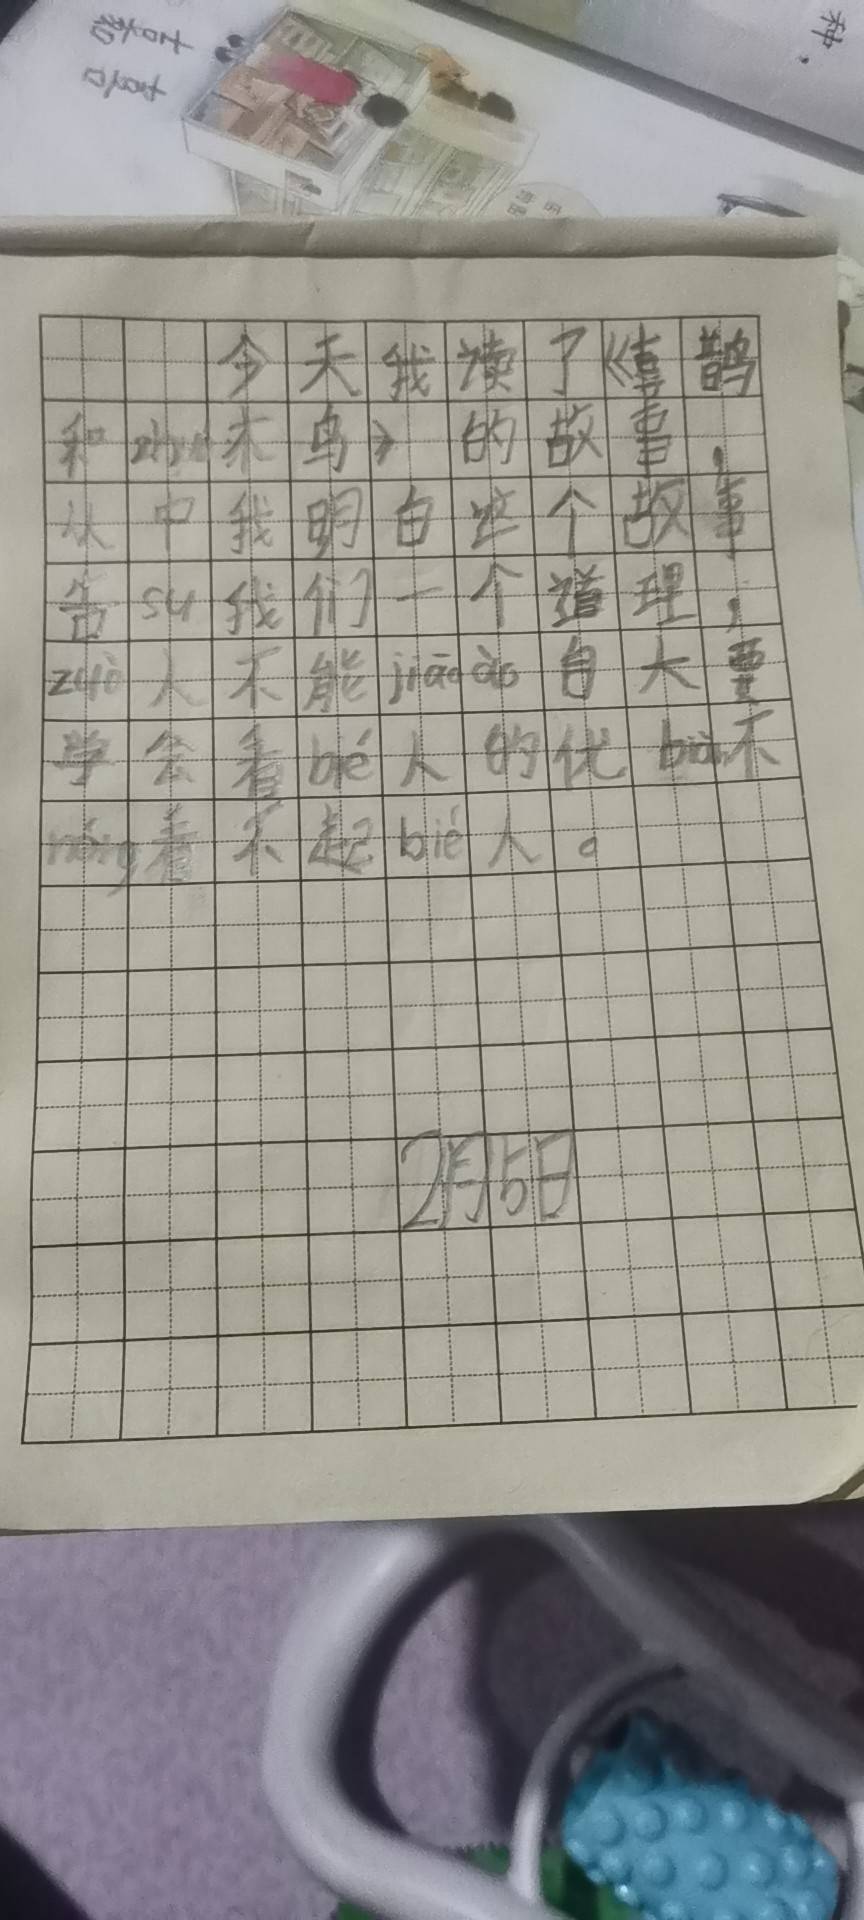 种，
今天我读了《喜鹊
和zhuó木鸟》的故事，
从中我明白这个故事
告su我们一个道理，
zuò人不能jiāoào自大要
学会看bié人的优 不
néng看不起bié人。
2月5日